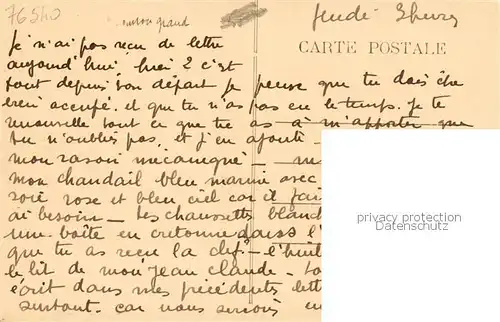 76540
jeudi 3 heures
CARTE POSTALE
je n'ai pas reçu de lettre
aujourd'hui, 2 c'est
tout depuis ton départ je pense que tu dois être
bien occupé. et que tu n'as pas eu le temps. je te
renouvelle tout ce que tu as à m'apporter que
tu n'oublies pas, et j'en ajoute
mon rasoir mécanique —
mon chandail bleu marine avec
soie rose et bleu ciel car il fai
ai besoin — tes chaussettes blanch
une boîte en cretonne dans l'
que tu as reçu la clef — l'huil
le lit de mon jean claude —
écrit dans mes précédents lett
surtout. car nous serions
privacy protection
Datenschutz